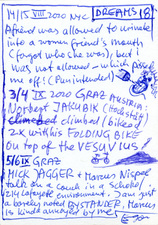 14/15 VIII 2010 NYC DREAMS 8
A friend was allowed to urinate
into a woman friend's mouth
(forgot who she was), but I
was not allowed - which pissed
me off! (Pun intended)
3/4 IX 2010 GRAZ AUSTRIA:
Norbert JAKUBIK (
climbed (biked)
2x with his FOLDING BIKE
on top of the VESUVIUS
5/6 IX GRAZ
MICK JAGGER + Marcus Nispel
talk on a couch in a
Lafayette environment. I am just
a barely noted BYSTANDER. Marcus
is kinda annoyed by me